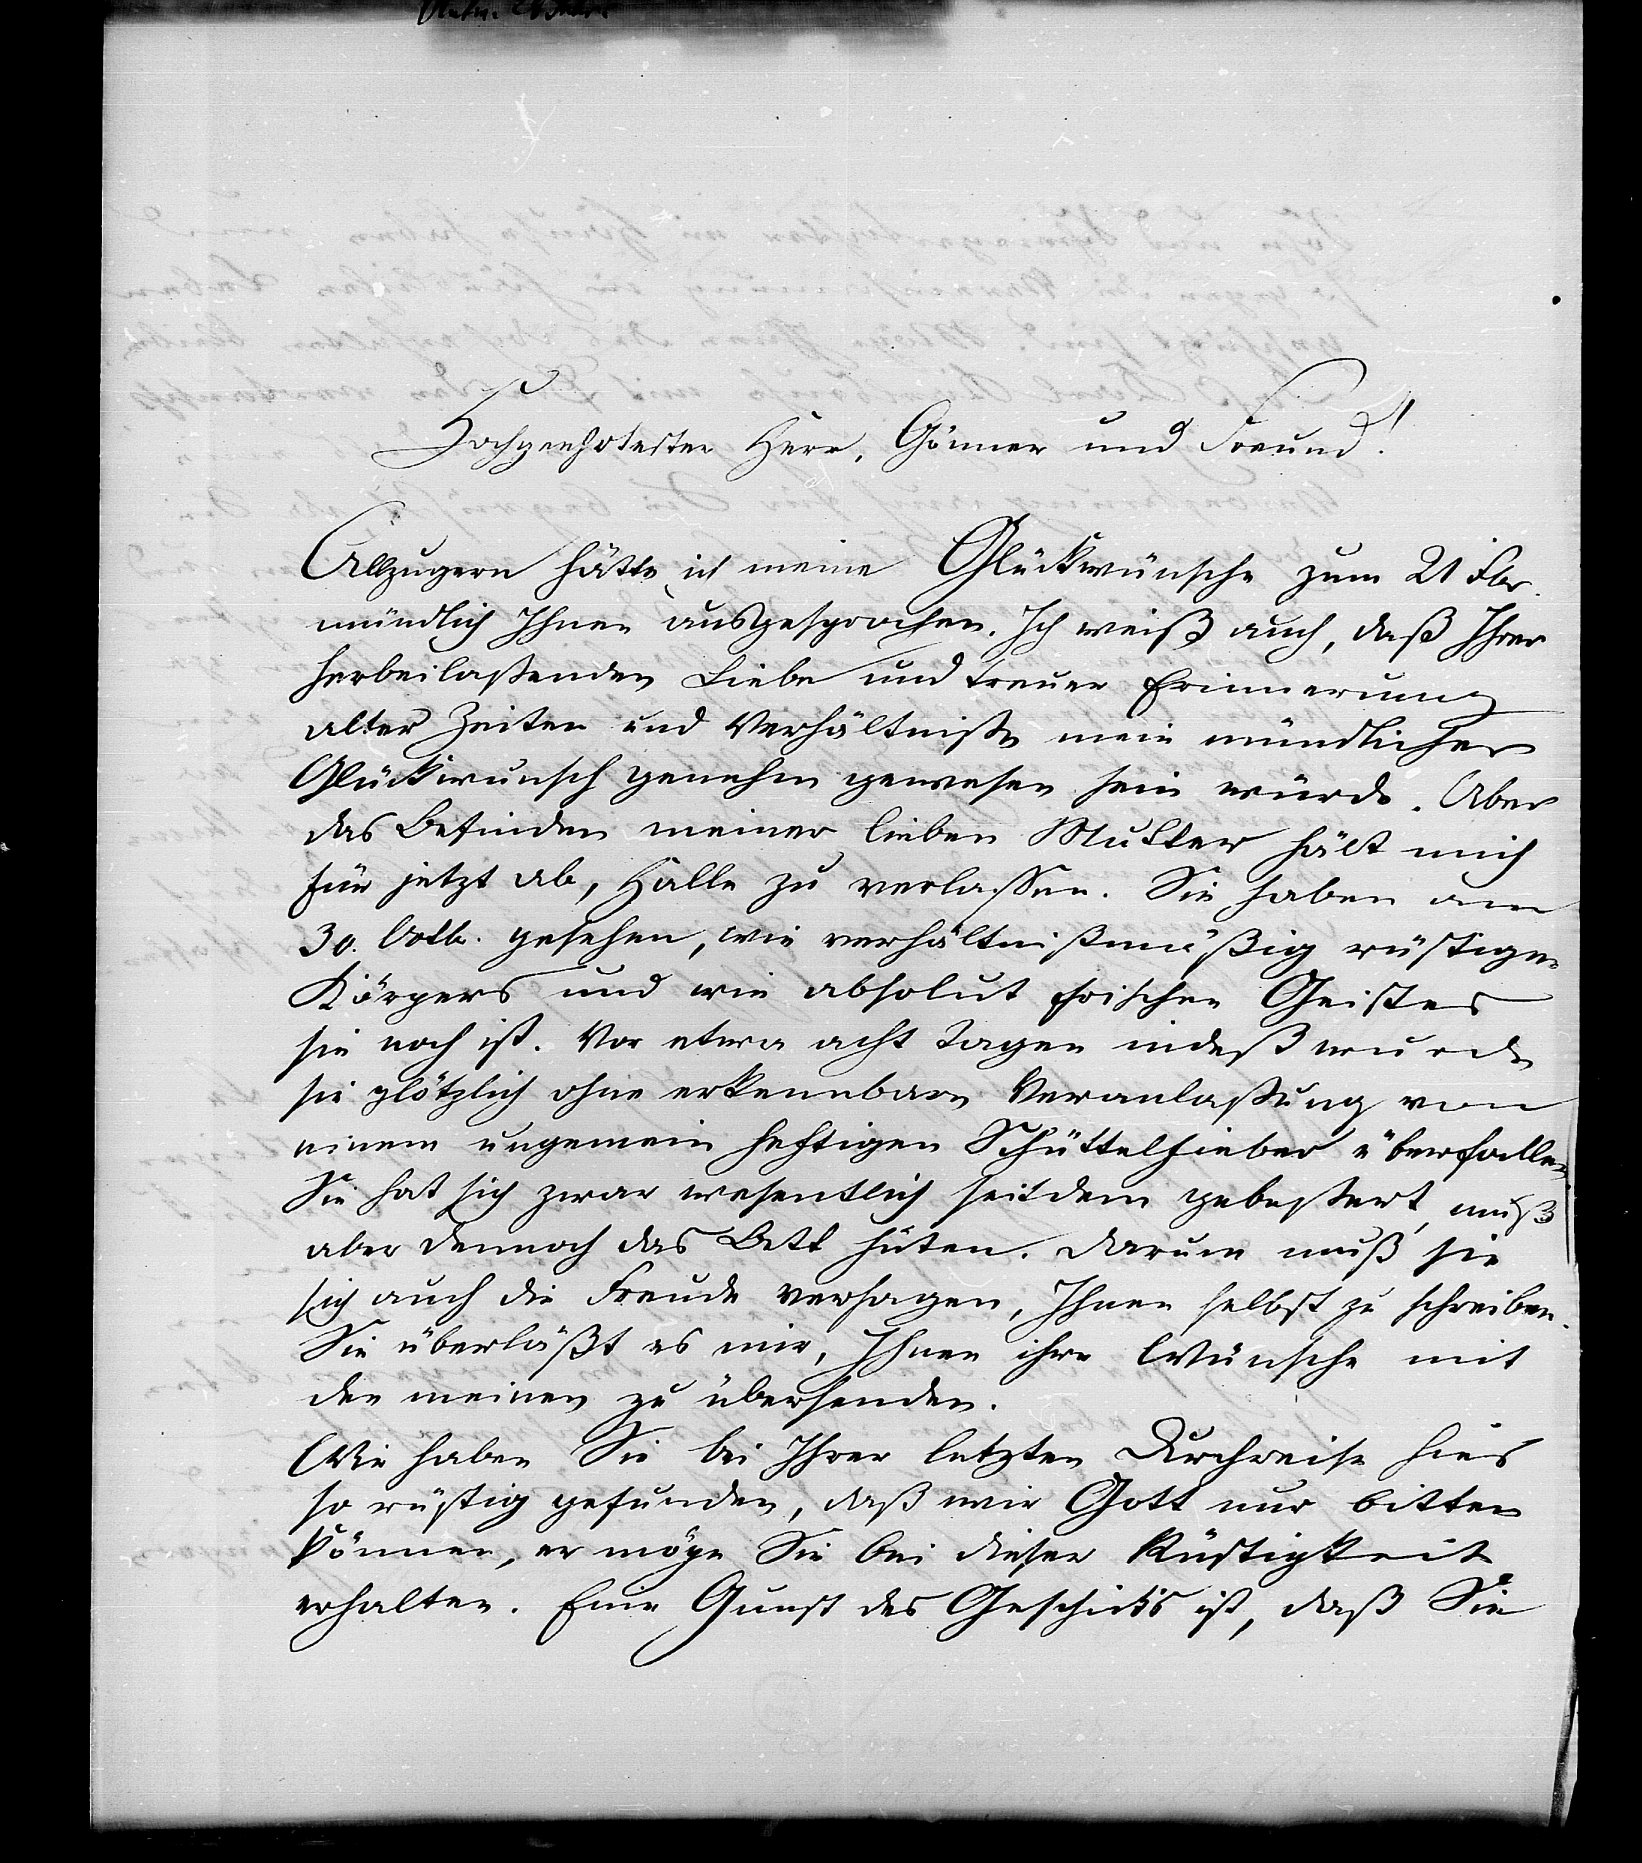 Hochgeehrtester Herr, Gönner und Freund!
Allzugern hätte ich meine Glückwünsche zum 21 Fbr.
mündlich Ihnen ausgesprochen. Ich weiß auch, daß Ihrer
herbeilaßenden Liebe und treuer Erinnerung
alter Zeiten und Verhältniße mein mündlicher
Glückwunsch genehm gewesen sein würde. Aber
das Befinden meiner lieben Mutter hält mich
für jetzt ab, Halle zu verlassen. Sie haben am
30. Octb. gesehen, wie verhältnißmäßig rüstigen
Körpers und wie absolut frischen Geistes
sie noch ist. Vor etwa acht Tagen indeß wurde
sie plötzlich ohne erkennbare Veranlaßung von
einem ungemein heftigen Schüttelfieber überfallen.
Sie hat sich zwar wesentlich seitdem gebeßert, muß
aber dennoch das Bett hüten. Darum muß sie
sich auch die Freude versagen, Ihnen selbst zu schreiben.
Sie überläßt es mir, Ihnen ihre Wünsche mit
den meinen zu übersenden.
Wir haben Sie bei Ihrer letzten Durchreise hier
so rüstig gefunden, daß wir Gott nur bitten
können, er möge Sie bei dieser Rüstigkeit
erhalten. Eine Gunst des Geschicks ist, daß Sie